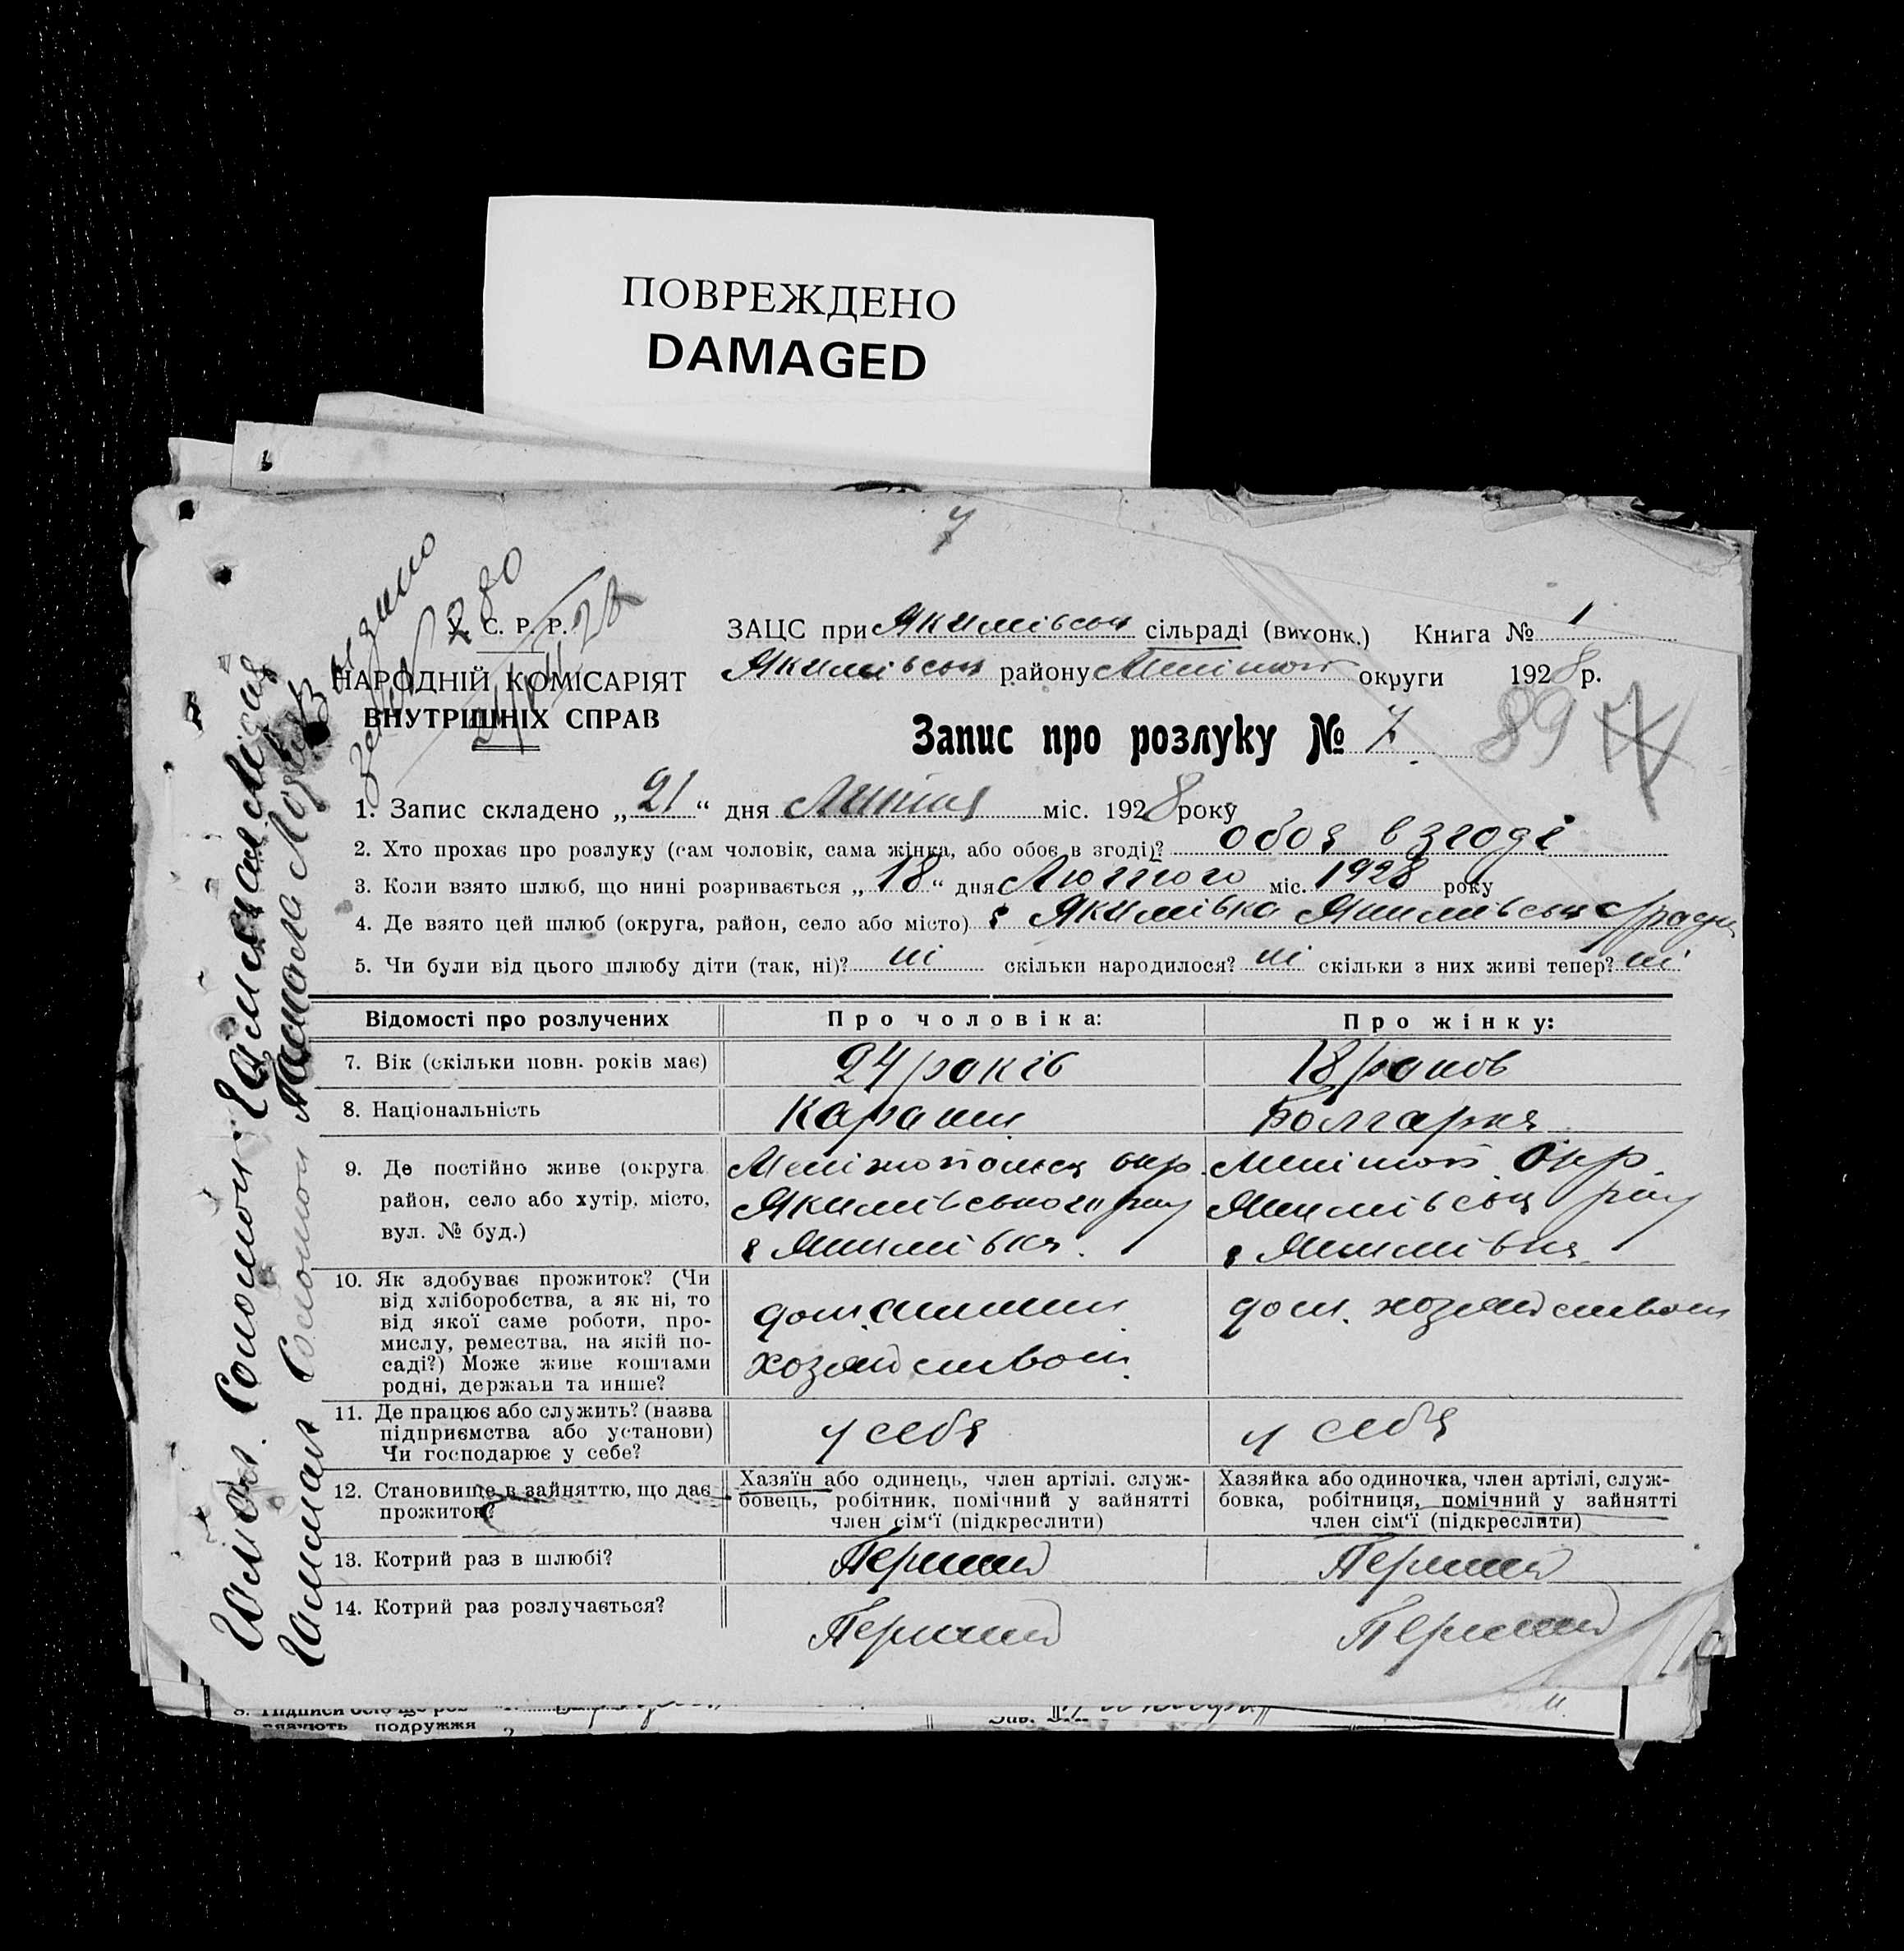 ПОВРЕЖДЕНО
DAMAGED
7
У. С. Р. Р.
НАРОДНІЙ КОМІСАРІЯТ
ВНУТРІШНІХ СПРАВ
ЗАЦС при Якимівськ сільраді (виконк.) Книга № 1
Якимівськ району Мелітоп округи 1928 р.
Запис про розлуку № 7.
89
1. Запис складено „21“ дня Липня міс. 1928 року
2. Хто прохає про розлуку (сам чоловік, сама жінка, або обоє в згоді)? обоя в згоді
3. Коли взято шлюб, що нині розривається „18“ дня Лютого міс. 1928 року
4. Де взято цей шлюб (округа, район, село або місто) с Якимівка Якимівськ
5. Чи були від цього шлюбу діти (так, ні)? ні скільки народилося? ні скільки з них живі тепер? ні
Відомості про розлучених Про чоловіка: Про жінку:
7. Вік (скільки повн. років має) 24 років 18 роков
8. Національність Караим Болгарка
9. Де постійно живе (округа район, село або хутір, місто, вул. № буд.)
Мелітопольск окр.
Якимівського рну
с Якимівка.
Мелітоп Окр.
Якимівськ рну
с Якимівка.
10. Як здобуває прожиток? (Чи
від хліборобства, а як ні, то
від якої саме роботи, про-
мислу, ремества, на якій по-
саді?) Може живе коштами
родні, держави та инше?
дом.
хозяйством.
дом. хозяйством
11. Де працює або служить? (назва
підприємства або установи)
Чи господарює у себе?
у себя
у себя
12. Становище в зайняттю, що дає
прожиток?
Хазяїн або одинець, член артілі. служ-
бовець, робітник, помічний у зайнятті
член сім'ї (підкреслити)
Хазяйка або одиночка, член артілі, служ-
бовка, робітниця, помічний у зайнятті
член сім'ї (підкреслити)
13. Котрий раз в шлюбі? Первий Первий
14. Котрий раз розлучається? Первий Первий
подружжя